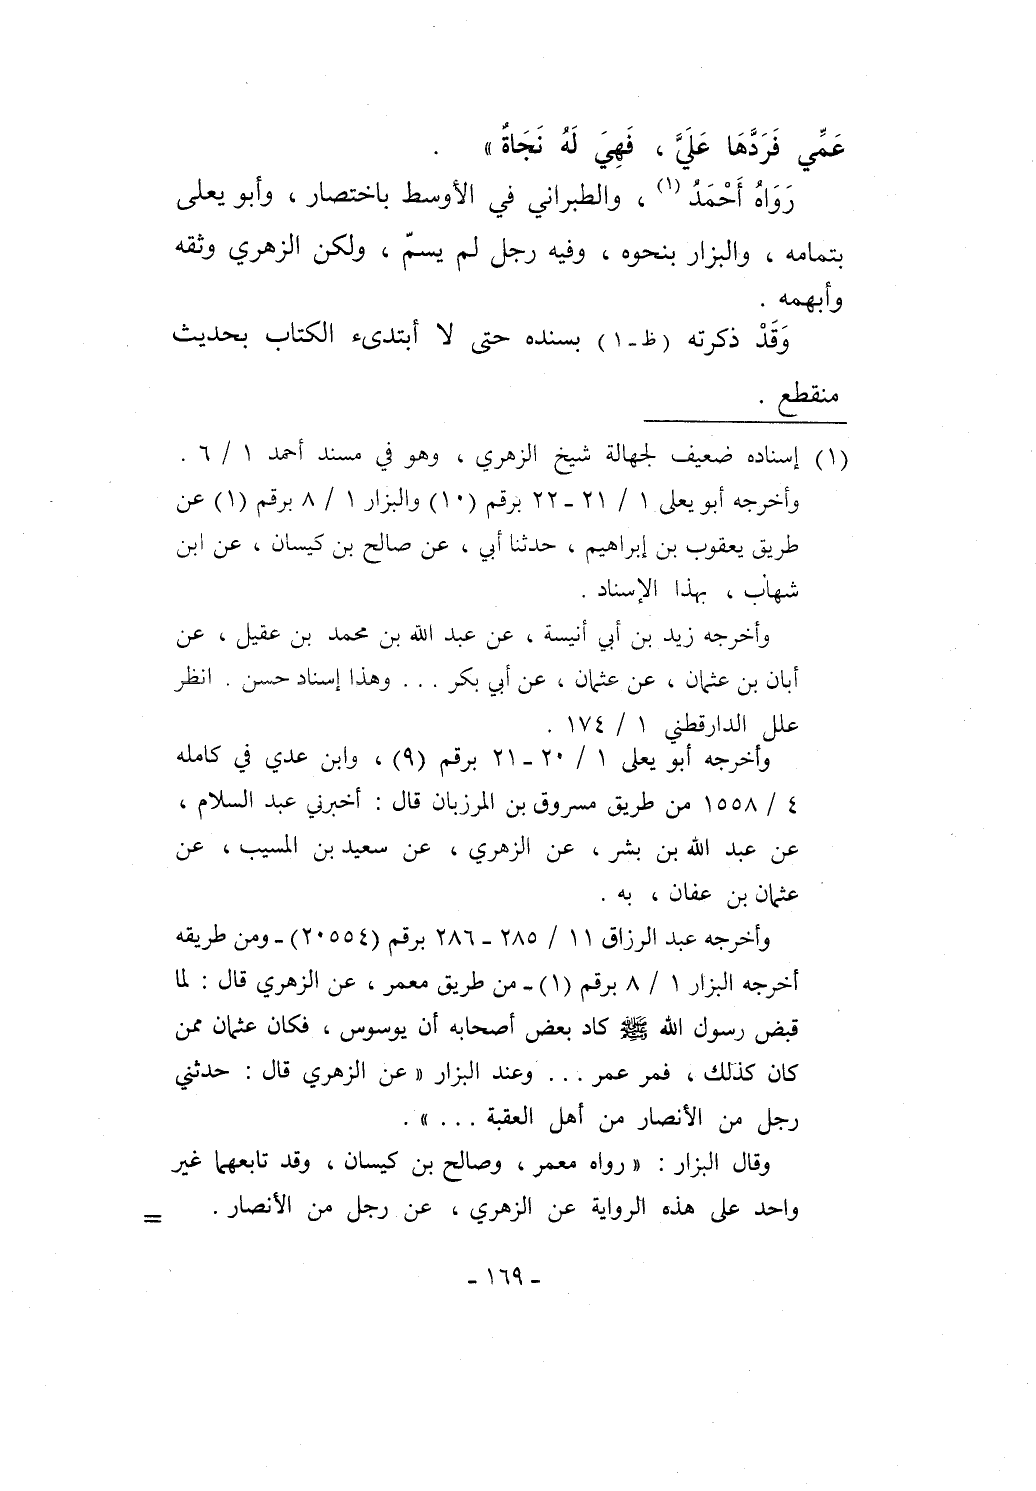 عَمِّي فَرَدَّهَا عَلَيَّ ، فَهِيَ لَهُ نَجَاةٌ » .
رَوَاهُ أَحْمَدُ (١) ، والطبراني في الأوسط باختصار ، وأبو يعلى
بتمامه ، والبزار بنحوه ، وفيه رجل لم يسمّ ، ولكن الزهري وثقه
وأبهمه .
وَقَدْ ذكرته (ظ ـ ١) بسنده حتى لا أبتدىء الكتاب بحديث
منقطع .
(١) إسناده ضعيف لجهالة شيخ الزهري ، وهو في مسند أحمد ١ / ٦ .
وأخرجه أبو يعلى ١ / ٢١ ـ ٢٢ برقم (١٠) والبزار ١ / ٨ برقم (١) عن
طريق يعقوب بن إبراهيم ، حدثنا أبي ، عن صالح بن كيسان ، عن ابن
شهاب ، بهذا الإسناد .
وأخرجه زيد بن أبي أنيسة ، عن عبد الله بن محمد بن عقيل ، عن
أبان بن عثمان ، عن عثمان ، عن أبي بكر . . . وهذا إسناد حسن . انظر
علل الدارقطني ١ / ١٧٤ .
وأخرجه أبو يعلى ١ / ٢٠ ـ ٢١ برقم (٩) ، وابن عدي في كامله
٤ / ١٥٥٨ من طريق مسروق بن المرزبان قال : أخبرني عبد السلام ،
عن عبد الله بن بشر ، عن الزهري ، عن سعيد بن المسيب ، عن
عثمان بن عفان ، به .
وأخرجه عبد الرزاق ١١ / ٢٨٥ ـ ٢٨٦ برقم (٢٠٥٥٤) ـ ومن طريقه
أخرجه البزار ١ / ٨ برقم (١) ـ من طريق معمر ، عن الزهري قال : لما
قبض رسول الله ﷺ كاد بعض أصحابه أن يوسوس ، فكان عثمان ممن
كان كذلك ، فمر عمر . . . وعند البزار « عن الزهري قال : حدثني
رجل من الأنصار من أهل العقبة . . . » .
وقال البزار : « رواه معمر ، وصالح بن كيسان ، وقد تابعهما غير
واحد على هذه الرواية عن الزهري ، عن رجل من الأنصار . =
ـ ١٦٩ ـ